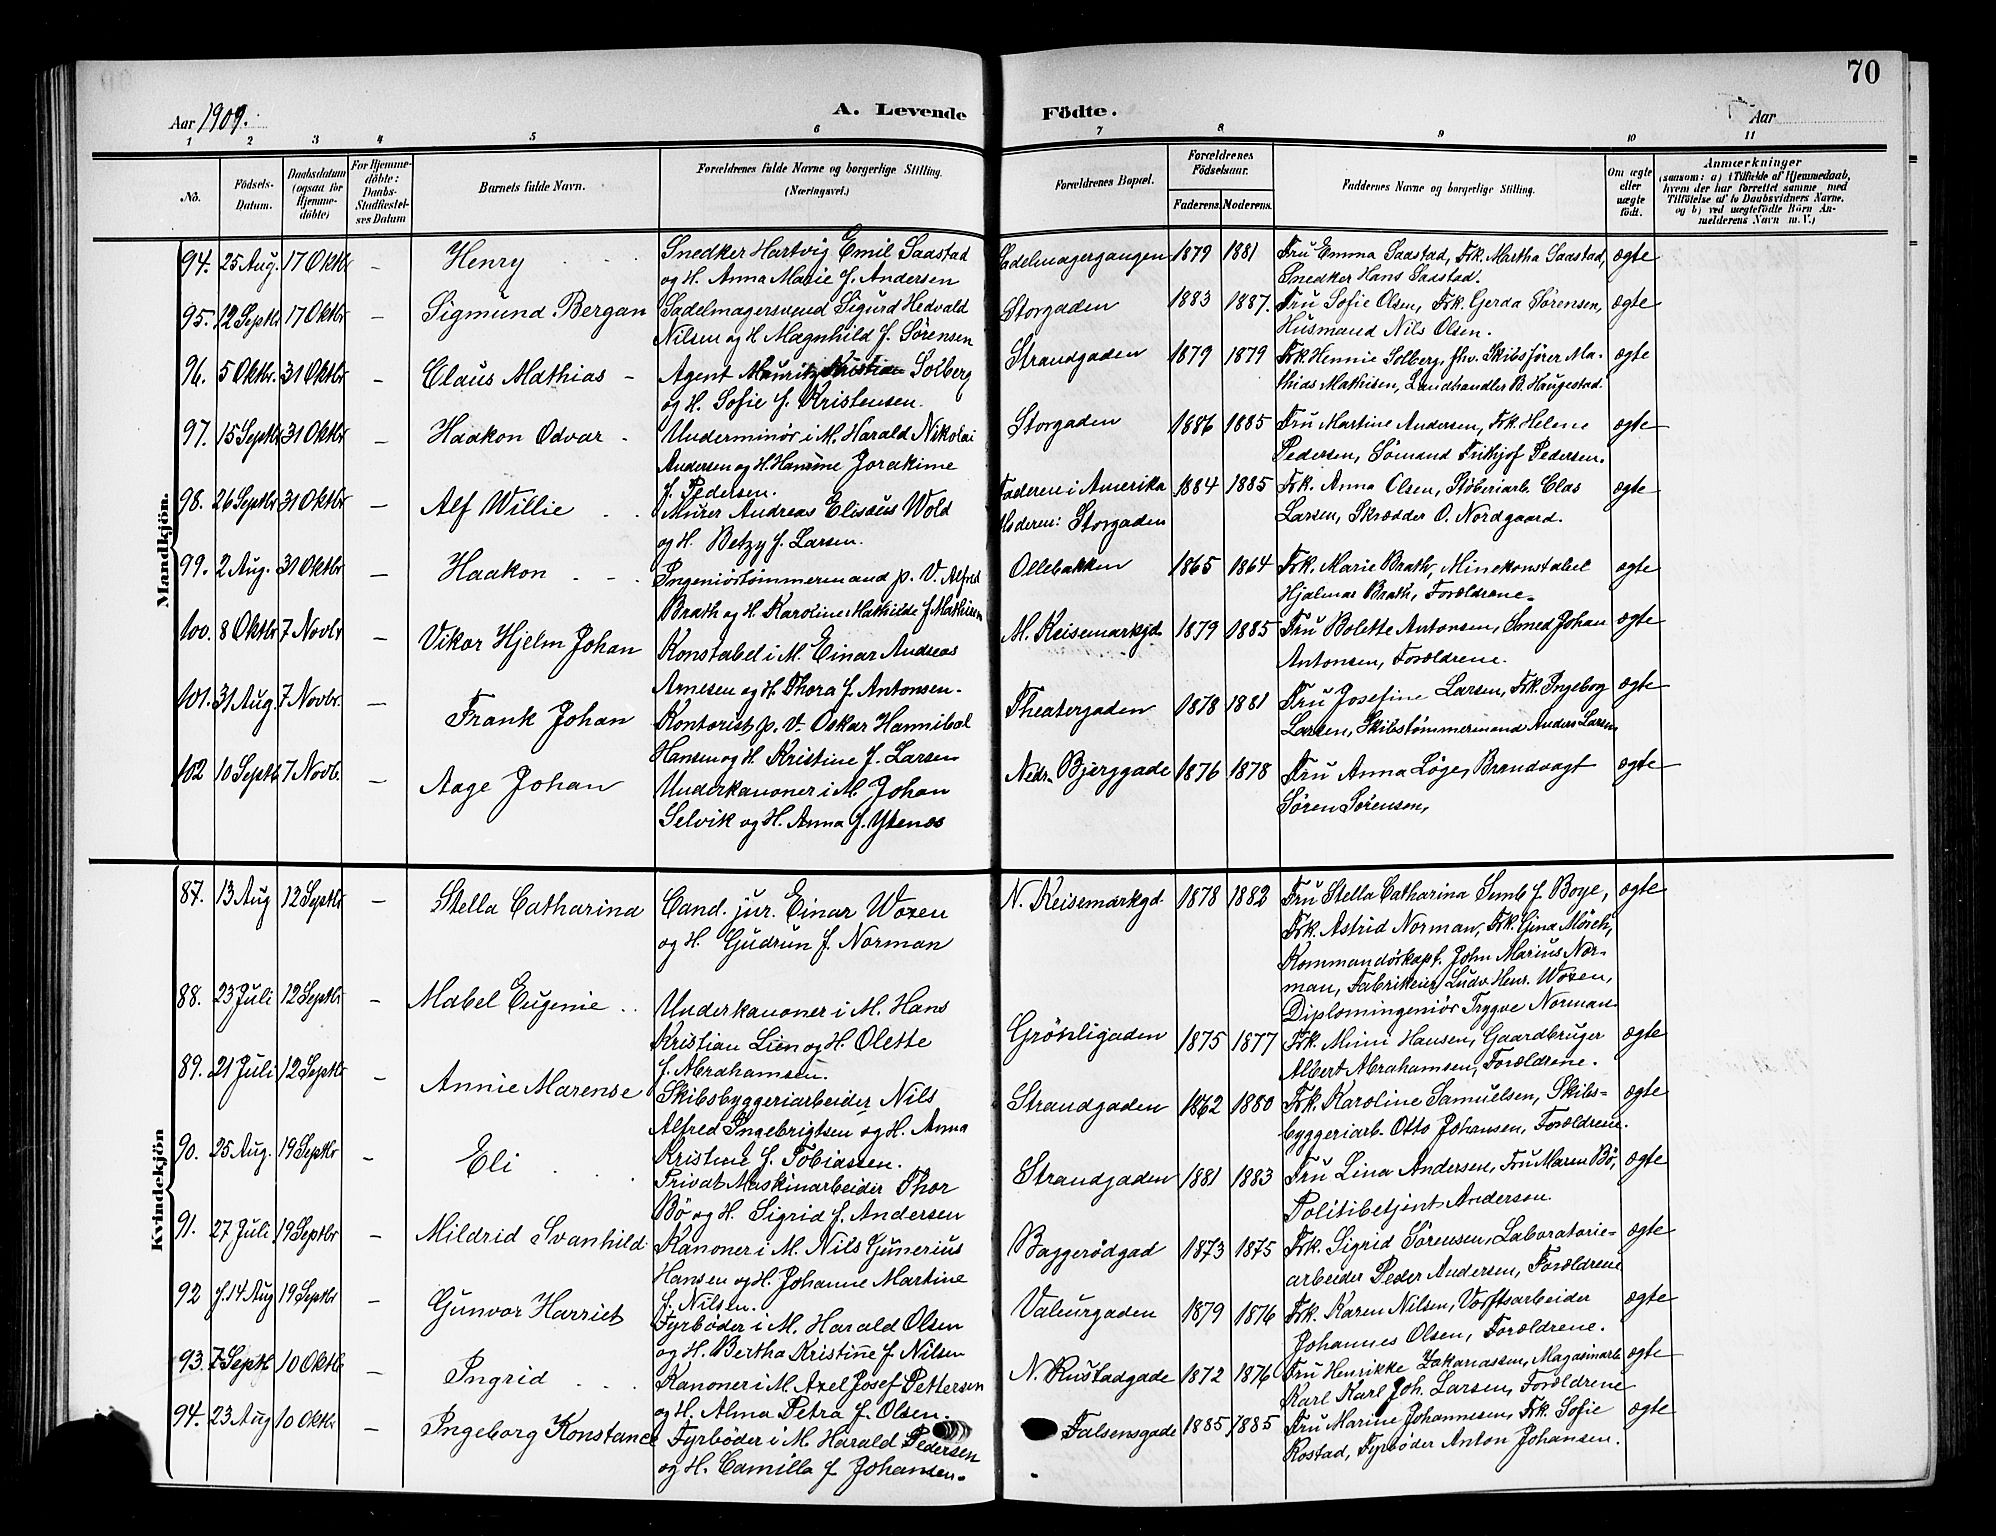 70
Aar 1909.
A. Levende Födte.
Aar
1 2 3 4 5 6 7 8 9 10 11
No.
Födsels-Datum.
Daabsdatum (ogsaa for Hjemmedöbte)
For Hjemmedöbte: Daabs-Stadfæstelses Datum
Barnets fulde Navn.
Forældrenes fulde Navne og borgerlige Stilling. (Næringsvei.)
Forældrenes Bopæl.
Forældrenes Födselsaar.
Faderens. Moderens.
Faddernes Navne og borgerlige Stilling.
Om ægte eller uægte födt.
Anmærkninger
(saasom: a) i Tilfælde af Hjemmedaab, hvem der har forrettet samme, med Tilföielse af to Daabsvidners Navne. og b) ved uægtefödte Börn Anmelderens Navn m. V.)
Mandkjön.
94. 25 Aug. 17 Oktbr – Henry
Snedker Hartvig Emil Saastad
og H. Anna Marie f. Andersen
Sadelmagergangen 1879 1881
Fru Emma Saastad, Frk. Martha Saastad,
Snedker Hans Saastad.
ægte
95. 12 Septbr 17 Oktbr – Sigmund Bergan
Sadelmagersvend Sigurd Hedvald
Nilsen og H. Magnhild f. Sörensen
Storgaden 1883 1887.
Fru Sofie Olsen, Frk. Gerda Sörensen,
Husmand Nils Olsen.
ægte
96. 5 Oktbr. 31 Oktbr – Claus Mathias –
Agent Mauritz Kristian Solberg
og H. Sofie f. Kristensen.
Strandgaden 1879 1879
Frk. Hennie Solberg, fhv. Skibsförer Ma-
thias Mathisen, Landhandler B. Haugestad.
ægte
97. 15 Septbr 31 Oktbr – Haakon Odvar
Underminör i M. Harald Nikolai
Andersen og H. Hansine Jorakime
f. Pedersen.
Storgaden 1886 1885
Fru Martine Andersen, Frk. Helene
Pedersen, Sömand Frithjof Pedersen.
ægte
98. 26 Septbr 31 Oktbr – Alf Willie
Murer Andreas Elisæus Wold
og H. Betzy f. Larsen.
Faderen i Amerika
Moderen: Storgaden
1884 1885
Frk. Anna Olsen, Stöberiarb. Clas
Larsen, Skrædder O. Nordgaard.
ægte
99. 2 Aug. 31 Oktbr – Haakon
Ingeniörtömmermand p. V. Alfred
Brath og H. Karoline Mathilde f. Mathisen
Ollebakken 1865 1864
Frk. Marie Brath, Minekonstabel
Hjalmar Brath, Forældrene.
ægte
100. 8 Oktbr 7 Novbr – Vikor Hjelm Johan
Konstabel i M. Einar Andreas
Arnesen og H. Thora f. Antonsen.
M. Keisemarkgd. 1879 1885
Fru Bolette Antonsen, Smed Johan
Antonsen, Forældrene.
ægte
101. 31 Aug. 7 Novbr. – Frank Johan
Kontorist p. V. Oskar Hannibal
Hansen og H. Kristine f. Larsen
Theatergaden 1878 1881
Fru Josefine Larsen, Frk. Ingeborg
Larsen, Skibstömmermand Anders Larsen
ægte
102 10 Septb. 7 Novb. – Aage Johan
Underkanoner i M. Johan
Selvik og H. Anna f. Ytenes
Nedr. Bjerggade 1876 1878
Fru Anna Löge, Brandvagt
Sören Sörensen,
ægte
Kvindekjön
87. 13 Aug 12 Septbr – Stella Catharina
Cand. jur. Einar Woxen
og H. Gudrun f. Norman
N. Keisemarkgd. 1878 1882
Fru Stella Catharina Semb f. Boye,
Frk. Astrid Norman, Frk. Gina Mörch,
Kommandörkapt. John Marius Nor-
man, Fabrikeier Ludv. Henr. Woxen,
Diplomingeniör Trygve Norman.
ægte
88. 23 Juli 12 Septbr – Mabel Eugenie
Underkanoner i M. Hans
Kristian Lien og H. Olette
f. Abrahamsen.
Grönligaden 1875 1877
Frk. Mimi Hansen, Gaardbruger
Albert Abrahamsen, Forældrene.
ægte
89. 21 Juli 12 Septbr – Annie Marense
Skibsbyggeriarbeider Nils
Alfred Ingebrigtsen og H. Anna
Kristine f. Tobiassen.
Strandgaden 1862 1880
Frk. Karoline Samuelsen, Skibs-
byggeriarb. Otto Johansen, Forældrene.
ægte
90. 25 Aug. 19 Septbr – Eli
Privat Maskinarbeider Thor
Bö og H. Sigrid f. Andersen
Strandgaden 1881 1883
Fru Lina Andersen, Fru Maren Bö,
Politibetjent Andersen.
ægte
91. 27 Juli 19 Septbr – Mildrid Svanhild
Kanoner i M. Nils Gunerius
Hansen og H. Johanne Martine
f. Nilsen.
Baggerödgad 1873 1875
Frk. Sigrid Sörensen, Laboratorie-
arbeider Peder Andersen, Forældrene
ægte
92 14 Aug 19 Septbr – Gunvor Harriet
Fyrböder i M. Harald Olsen
og H. Bertha Kristine f. Nilsen
Valeurgaden 1879 1876
Frk. Karen Nilsen, Værftsarbeider
Johannes Olsen, Forældrene.
ægte
93. 7 Septb. 10 Oktb. – Ingrid
Kanoner i M. Axel Josef Pettersen
og H. Alma Petra f. Olsen.
N. Rustadgade 1872 1876
Fru Henrikke Zakariassen, Magasinarb.
Karl Karl Joh. Larsen, Forældrene
ægte
94. 23 Aug 10 Oktbr – Ingeborg Konstance
Fyrböder i M. Harald Pedersen
og H. Camilla f. Johansen.
Falsensgade 1885 1885
Fru Marine Johannesen, Frk. Sofie
Rostad, Fyrböder Anton Johansen.
ægte